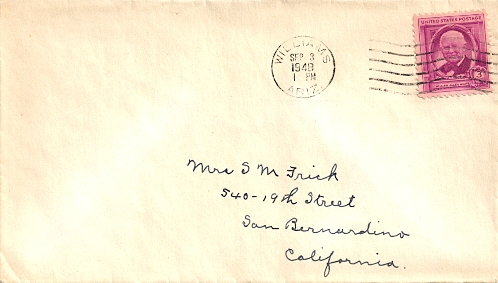 WILLIAMS
SEP 3
1948
1 PM
ARIZ.
UNITED STATES POSTAGE
3
Mrs S M Frick
540-19th Street
San Bernardino
California.